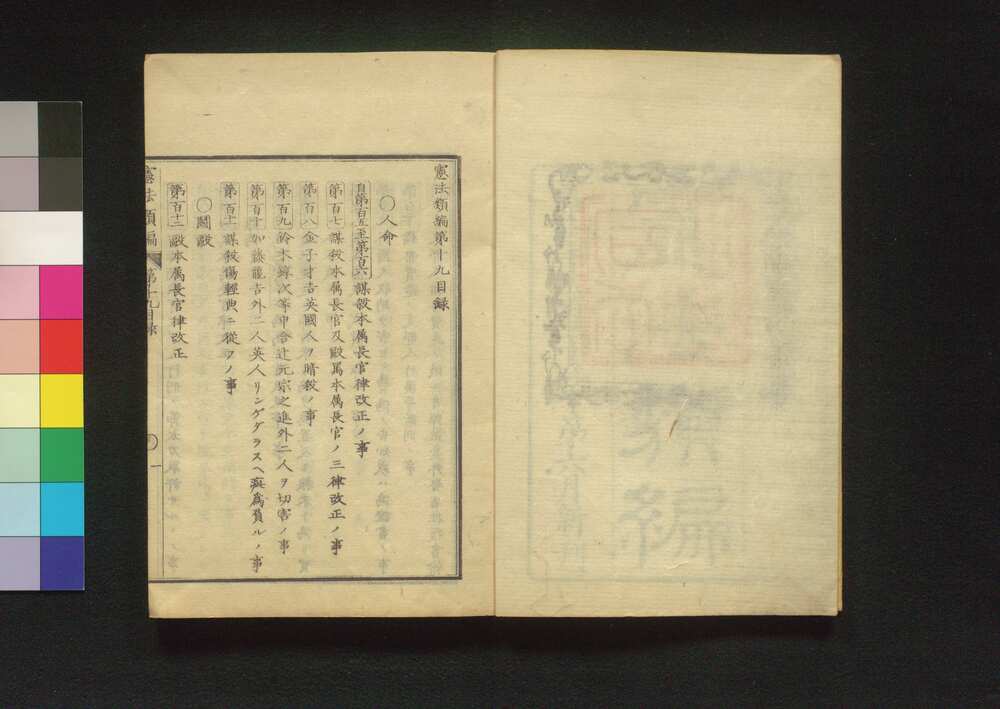 憲法類編第十九目録
〇人命
自第百五至第百六 謀殺本属長官律改正ノ事
第百七 謀殺本属長官及毆罵本属長官ノ三律改正ノ事
第百八 金子才吉英國人ヲ暗殺ノ事
第百九 鈴木錄次等申合辻元宗之進外二人ヲ切害ノ事
第百十 加藤龍吉外二人英人リングダラスヘ疵為負ルノ事
第百十一 謀殺傷輕典ニ從フノ事
〇鬪毆
第百十二 毆本属長官律改正
憲法類編 第十九目録 〇 一